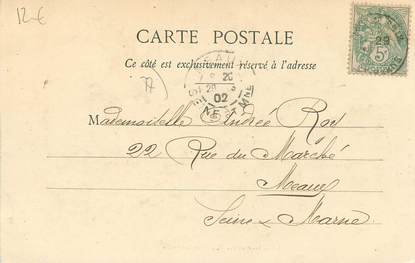 12 €
CARTE POSTALE
Ce côté est exclusivement réservé à l'adresse
77
02
Mademoiselle Andrée
22 Rue du Marché
Meaux
Seine & Marne